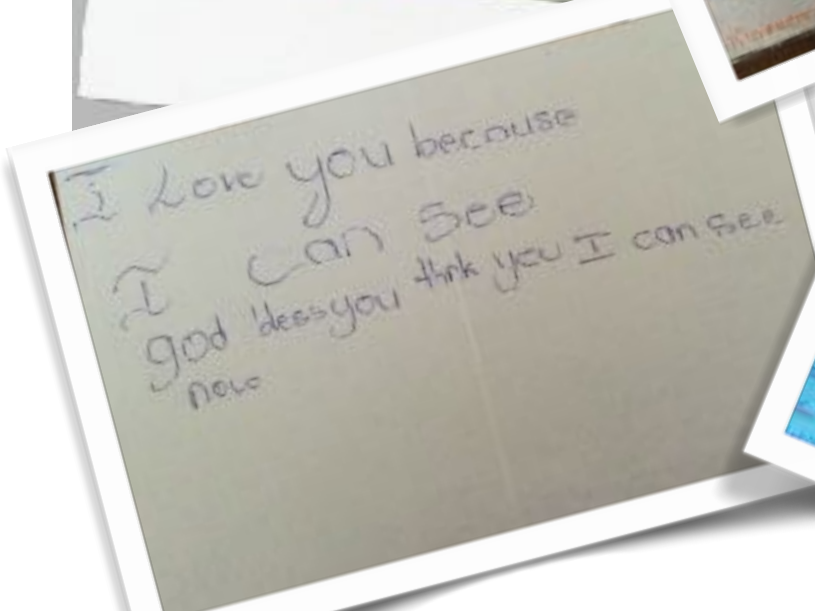 I Love you because
I can see
god 'dessyou thnk you I can see
now